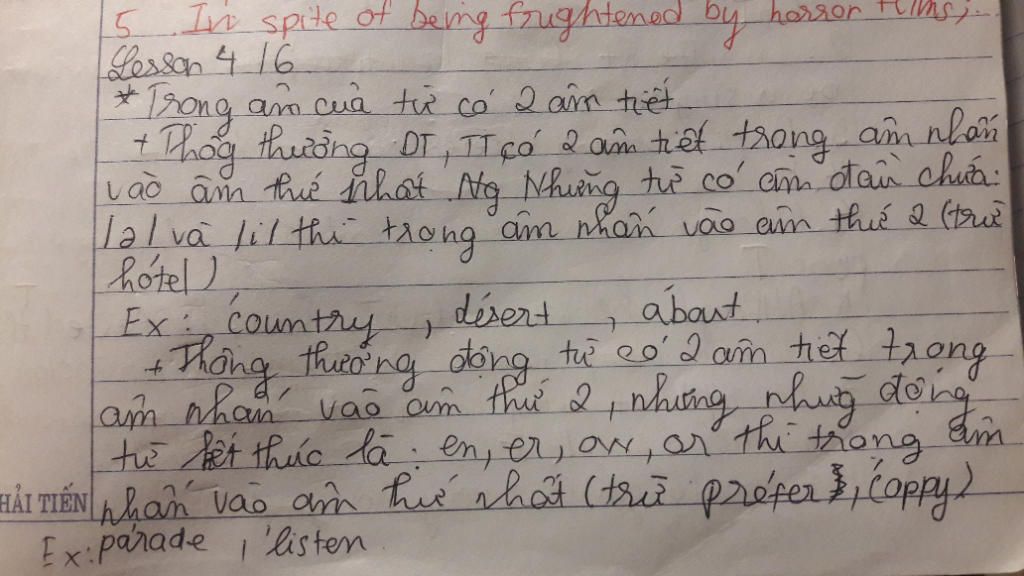 5. In spite of being frughtened by horror films,...
Lesson 4/6
* Trọng âm của từ có 2 âm tiết
+ Thôg thường DT, TT có 2 âm tiết trọng âm nhấn
vào âm thứ nhất. Ng Những từ có âm đầu chứa:
/ə/ và /i/ thì trọng âm nhấn vào âm thứ 2 (trừ
hótel)
Ex: 'country, désert, about
+ Thông thường động từ có 2 âm tiết trọng
âm nhấn vào âm thứ 2, nhưng nhữg động
từ kết thúc là: en, er, ow, or thì trọng âm
HẢI TIẾN nhấn vào âm thứ nhất (trừ préfer, 'coppy)
Ex: parade, 'listen